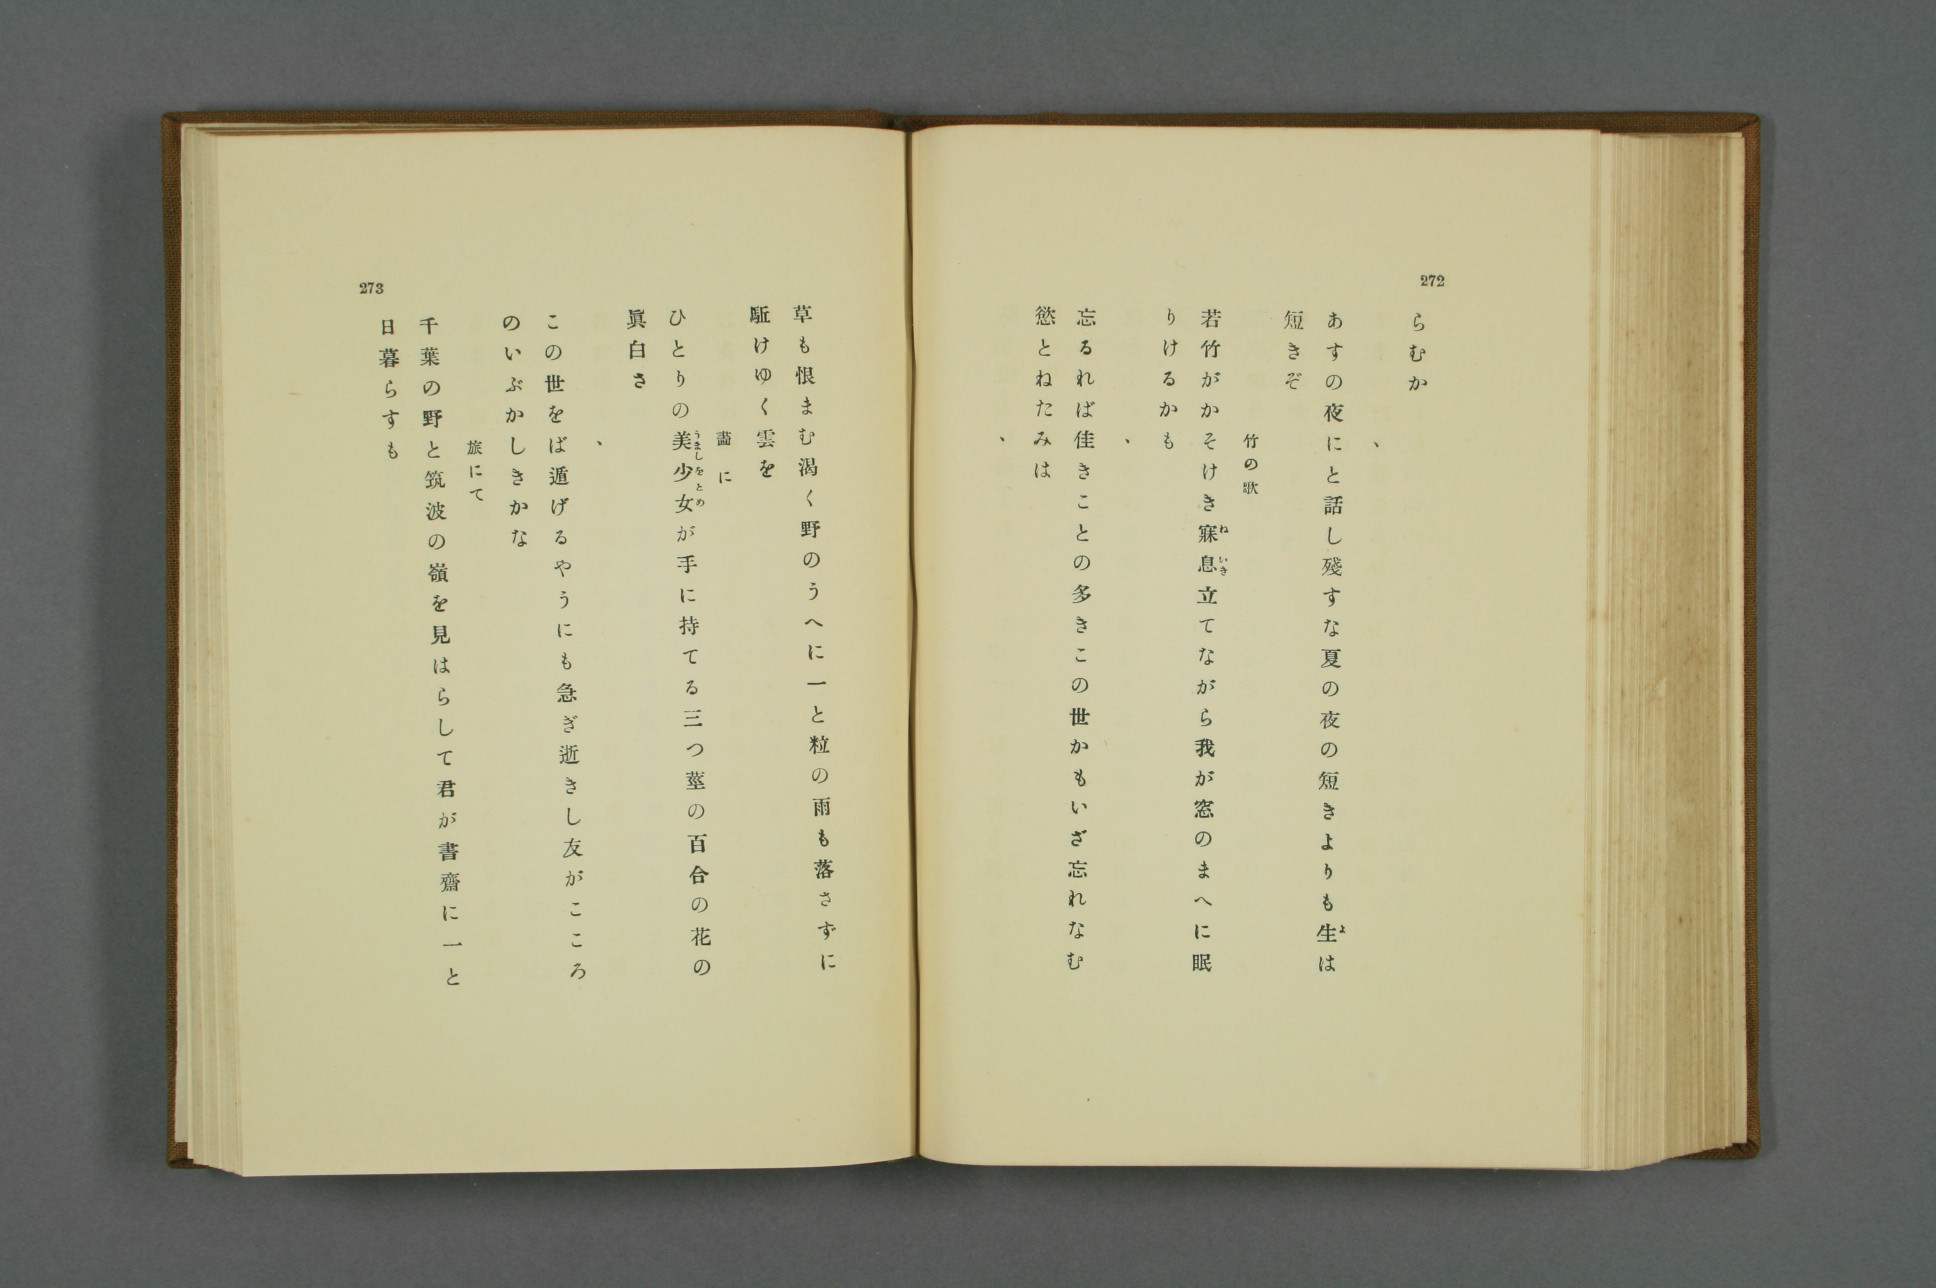 272
らむか
、
あすの夜にと話し殘すな夏の夜の短きよりも生は
短きぞ
竹の歌
若竹がかそけき寐息立てながら我が窓のまへに眠
りけるかも
、
忘るれば佳きことの多きこの世かもいざ忘れなむ
慾とねたみは
、
273
草も恨まむ渇く野のうへに一と粒の雨も落さずに
駈けゆく雲を
畵に
ひとりの美少女が手に持てる三つ莖の百合の花の
眞白さ
、
この世をば遁げるやうにも急ぎ逝きし友がこころ
のいぶかしきかな
旅にて
千葉の野と筑波の嶺を見はらして君が書齋に一と
日暮らすも